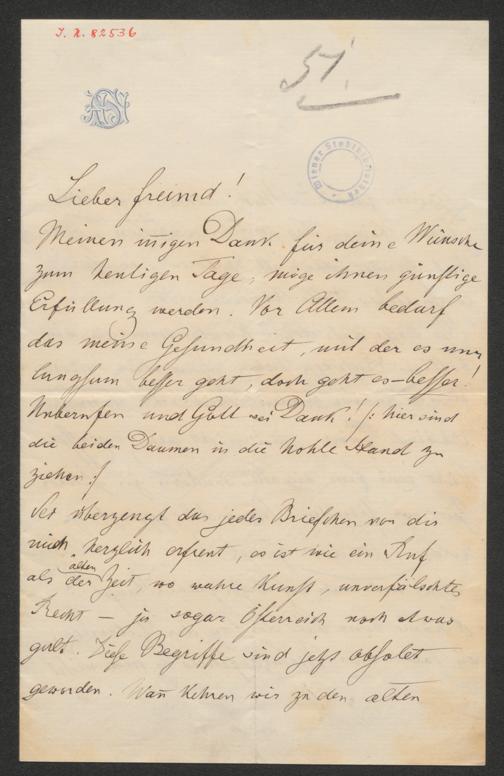 I. N. 82536
51.
Wiener Stadtbibliothek
Lieber Freund!
Meinen in̄igen Dank für deine Wünsche
zum heutigen Tage, möge ihnen günstige
Erfüllung werden. Vor Allem bedarf
das meine Gesundheit, mit der es nur
langsam besser geht, doch geht es – besser!
Unberufen und Gott sei Dank! /: hier sind
die beiden Daumen in die hohle Hand zu
ziehen :/
Sei überzeugt das jedes Briefchen von dir
mich herzlich erfreut, es ist wie ein Ruf
aus der alten Zeit, wo wahre Kunst, unverfälschtes
Recht – ja sogar Österreich noch etwas
galt. Diese Begriffe sind jetzt obsolet
geworden. Wan̄ kehren wir zu den alten